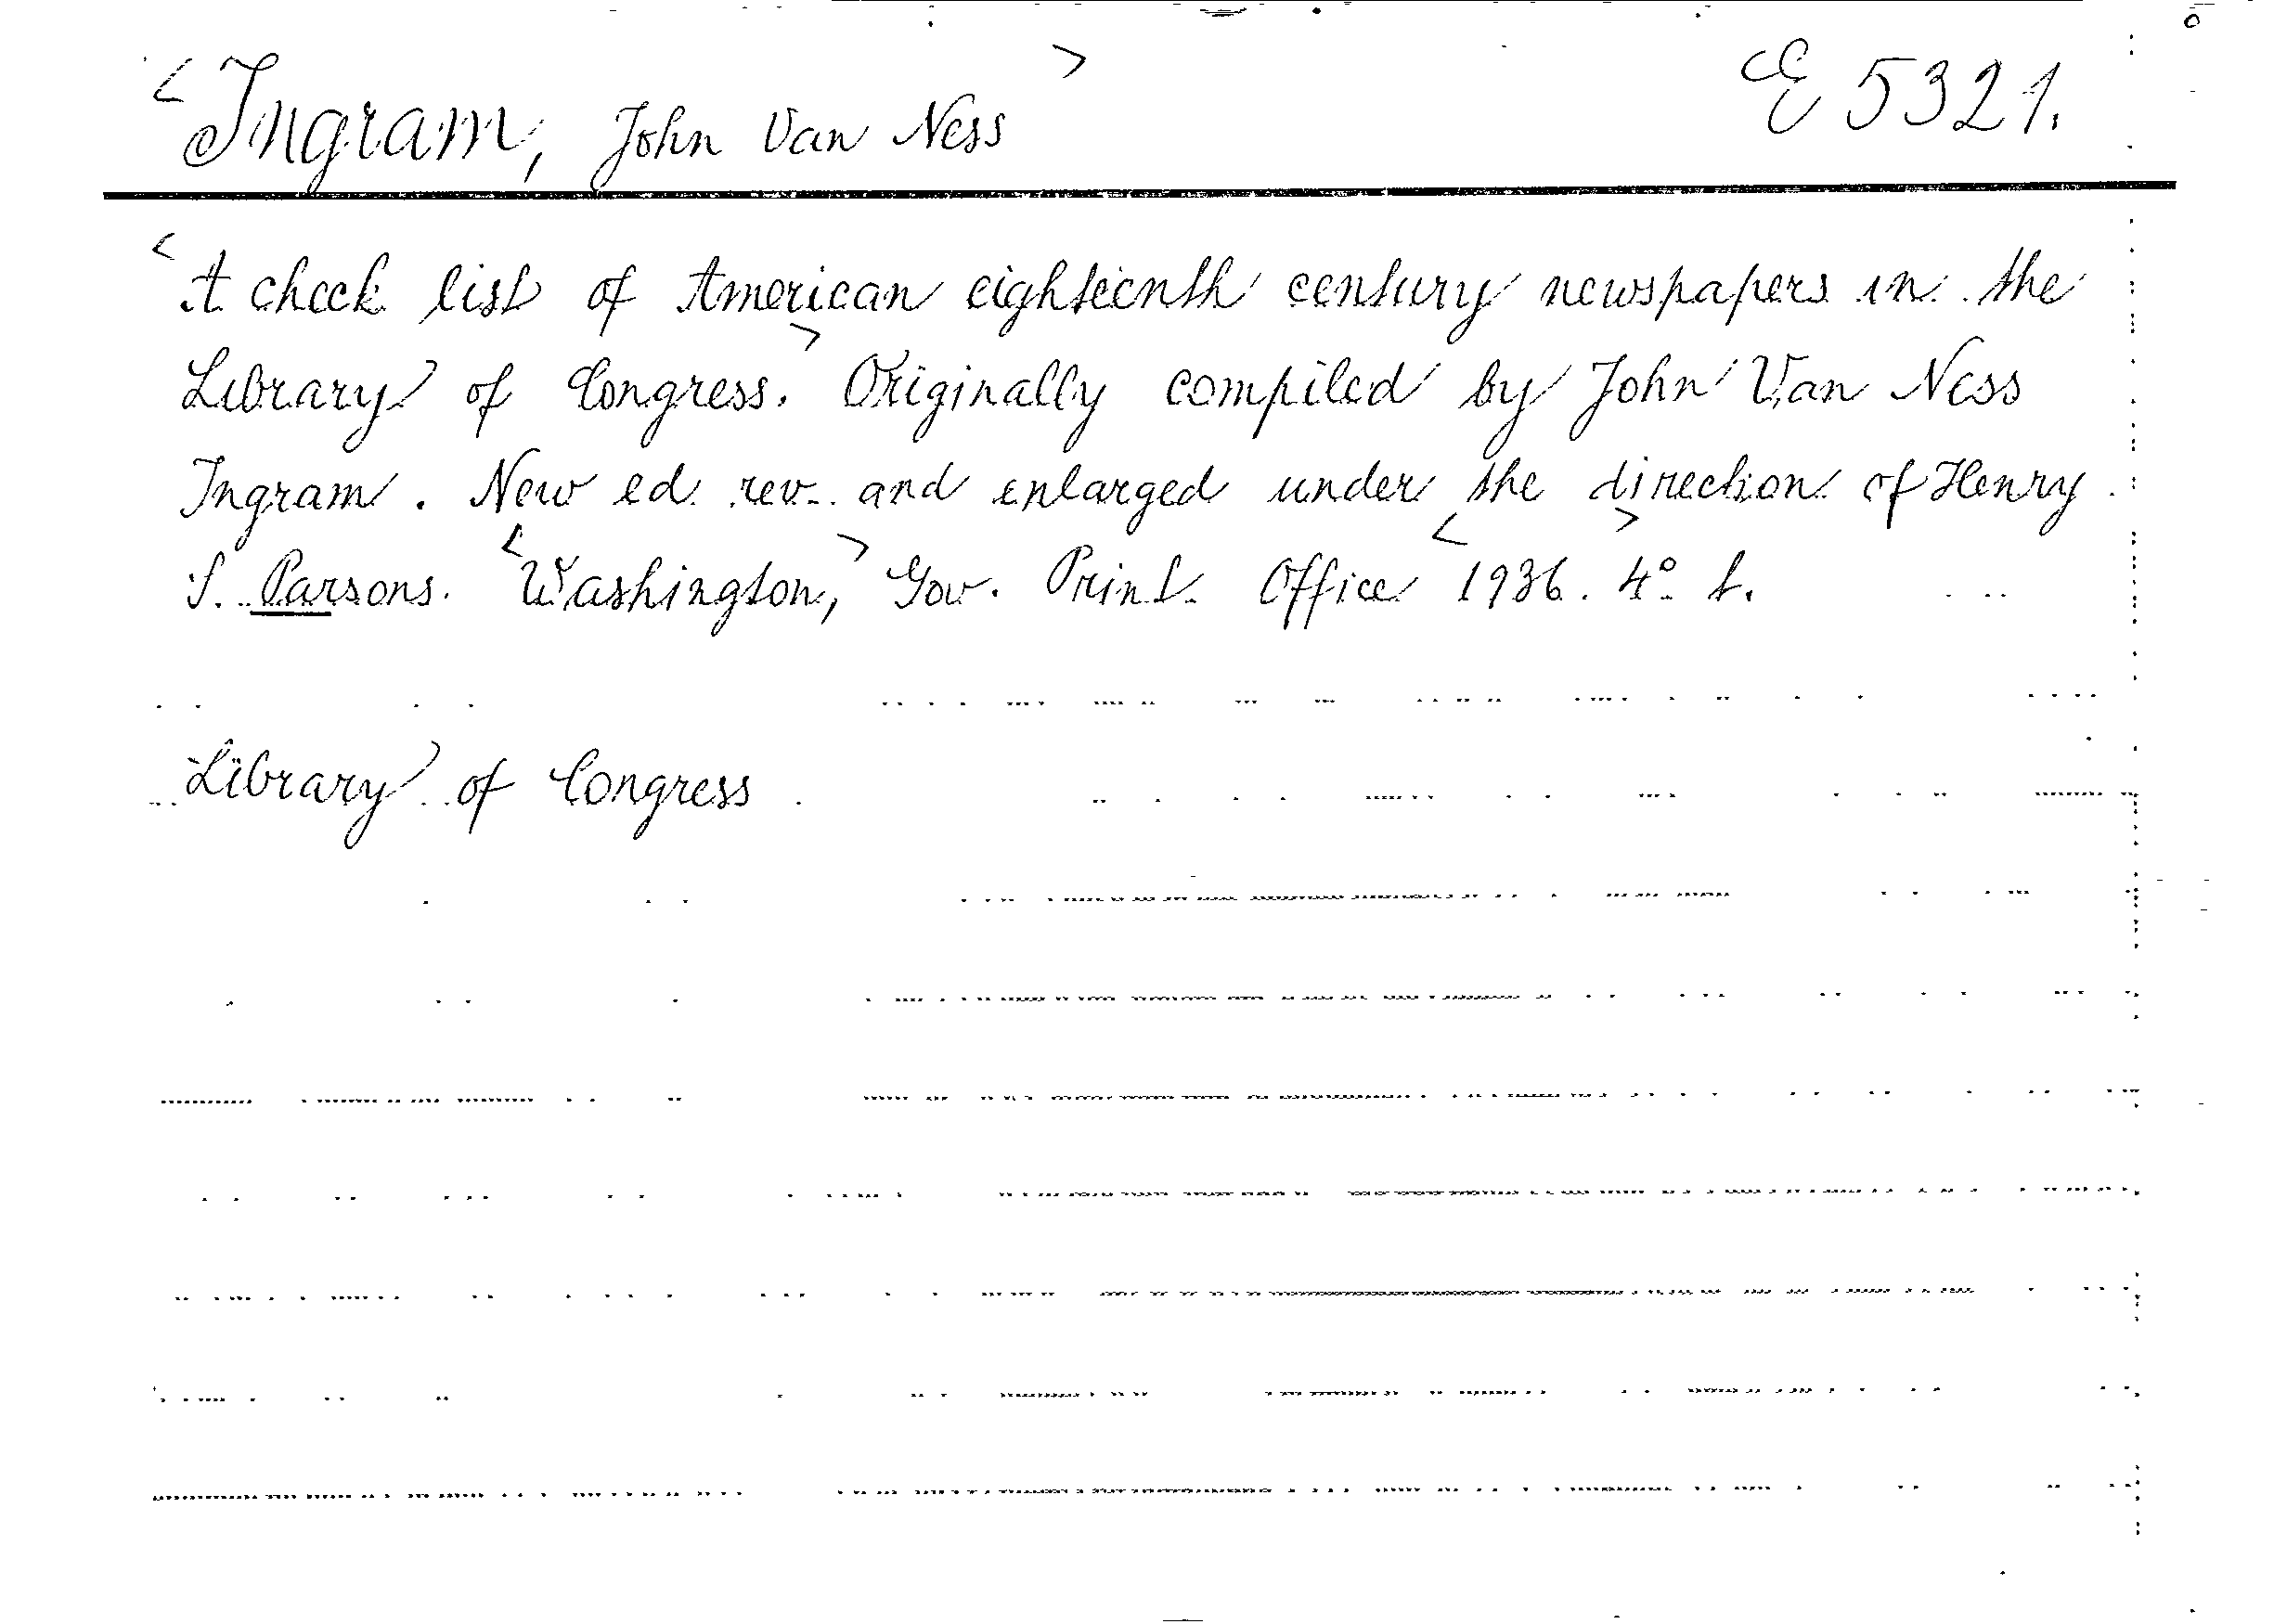 <Ingram, John Van Ness> E 5321.
<A check list of American eighteenth century newspapers in the
Library of Congress.> Originally compiled by John Van Ness
Ingram. New ed. rev. and enlarged under the direction of Henry
S. Parsons. <Washington,> Gov. Print. Office <1936.> 4° t.
Library of Congress